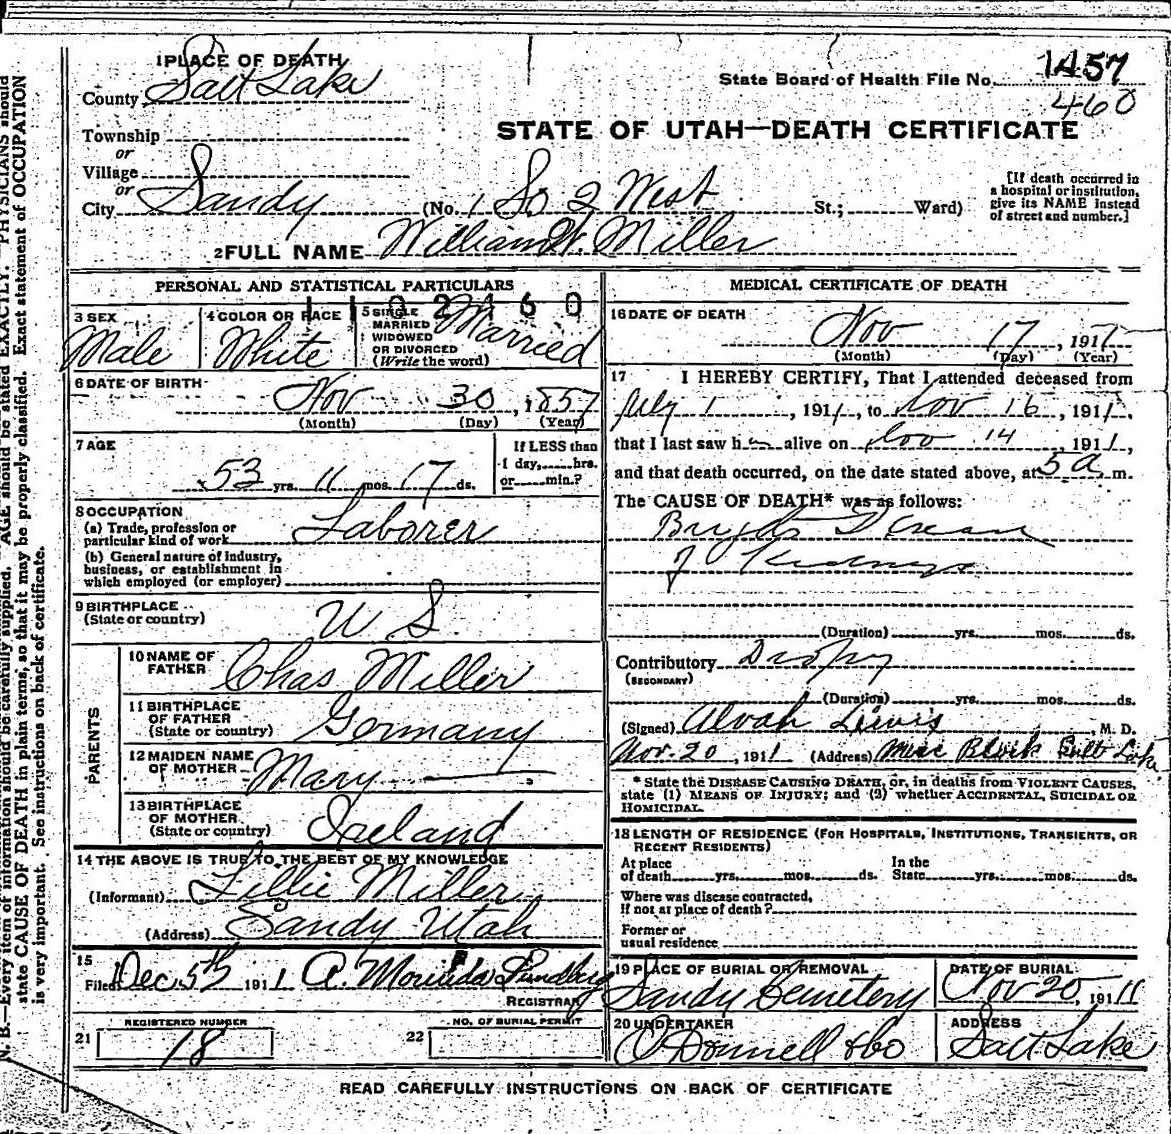 1457
460
1 PLACE OF DEATH
County Salt Lake
State Board of Health File No.
STATE OF UTAH—DEATH CERTIFICATE
Township
or
Village
or
City Sandy (No. 1 So 2 West St.; Ward)
[If death occurred in
a hospital or institution,
give its NAME instead
of street and number.]
2 FULL NAME William W. Miller
PERSONAL AND STATISTICAL PARTICULARS
1102460
3 SEX
Male
4 COLOR OR RACE
White
5 SINGLE
MARRIED
WIDOWED
OR DIVORCED
(Write the word)
Married
6 DATE OF BIRTH
Nov 30, 1857
(Month) (Day) (Year)
7 AGE
53 yrs. 11 mos. 17 ds.
If LESS than
1 day, hrs.
or min.?
8 OCCUPATION
(a) Trade, profession or
particular kind of work Laborer
(b) General nature of industry,
business, or establishment in
which employed (or employer)
9 BIRTHPLACE
(State or country) U S.
PARENTS
10 NAME OF
FATHER Chas Miller
11 BIRTHPLACE
OF FATHER
(State or country) Germany
12 MAIDEN NAME
OF MOTHER Mary
13 BIRTHPLACE
OF MOTHER
(State or country) Ireland
14 THE ABOVE IS TRUE TO THE BEST OF MY KNOWLEDGE
(Informant) Lillie Miller
(Address) Sandy Utah
15
Filed Dec. 5th 1911 A. Lundberg
REGISTRAR
REGISTERED NUMBER
21 18
NO. OF BURIAL PERMIT
22
MEDICAL CERTIFICATE OF DEATH
16 DATE OF DEATH
Nov 17, 1911
(Month) (Day) (Year)
17 I HEREBY CERTIFY, That I attended deceased from
July 1, 1911, to Nov 16, 1911,
that I last saw h alive on Nov 14, 1911,
and that death occurred, on the date stated above, at 5 a m.
The CAUSE OF DEATH* was as follows:
Brights Disease
of Kidneys
(Duration) yrs. mos. ds.
Contributory Dropsy
(SECONDARY)
(Duration) yrs. mos. ds.
(Signed) Alvah Lewis, M. D.
Nov. 20, 1911 (Address) Block Salt Lake
* State the DISEASE CAUSING DEATH, or, in deaths from VIOLENT CAUSES,
state (1) MEANS OF INJURY; and (2) whether ACCIDENTAL, SUICIDAL OR
HOMICIDAL.
18 LENGTH OF RESIDENCE (FOR HOSPITALS, INSTITUTIONS, TRANSIENTS, OR
RECENT RESIDENTS)
At place
of death yrs. mos. ds.
In the
State yrs. mos. ds.
Where was disease contracted,
If not at place of death?
Former or
usual residence
19 PLACE OF BURIAL OR REMOVAL
Sandy Cemetery
DATE OF BURIAL
Nov 20, 1911
20 UNDERTAKER
O'Donnell & Co
ADDRESS
Salt Lake
READ CAREFULLY INSTRUCTIONS ON BACK OF CERTIFICATE
N. B.—Every item of information should be carefully supplied. AGE should be stated EXACTLY. PHYSICIANS should
state CAUSE OF DEATH in plain terms, so that it may be properly classified. Exact statement of OCCUPATION
is very important. See instructions on back of certificate.